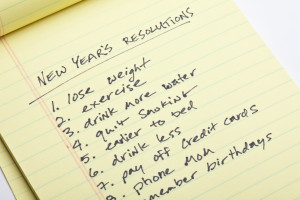 NEW YEAR'S RESOLUTIONS
1. lose weight
2. exercise
3. drink more water
4. quit smoking
5. earlier to bed
6. drink less
7. pay off credit cards
8. phone mom
birthdays